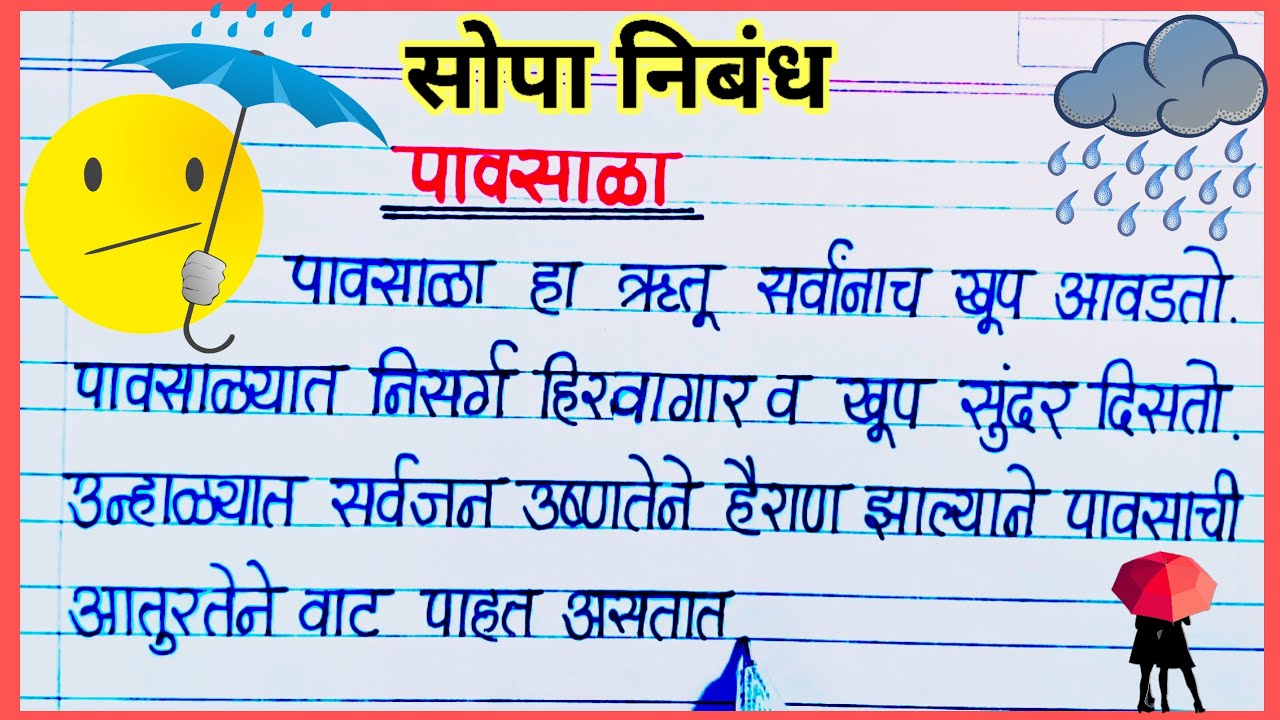 सोपा निबंध
पावसाळा
पावसाळा हा ऋतू सर्वांनाच खूप आवडतो.
पावसाळ्यात निसर्ग हिरवागार व खूप सुंदर दिसतो.
उन्हाळ्यात सर्वजन उष्णतेने हैराण झाल्याने पावसाची
आतुरतेने वाट पाहत असतात